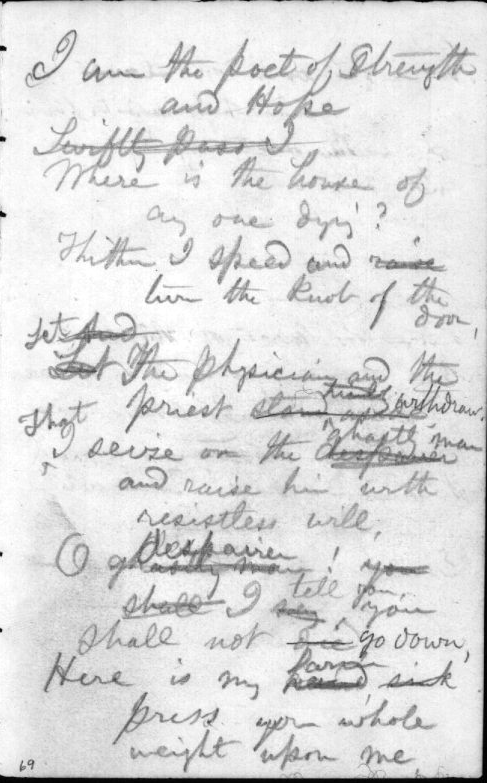 I am the poet of Strength
and Hope
Swiftly pass I
Where is the house of
any one dying?
Thither I speed and raise
turn the knob of the
door,
Let And
Let The physician and the
timidly withdraw,
priest stand aside
That ghastly man
I seize on the despairer
and raise him with
resistless will;
despairer
O ghastly man! you
tell you,
shall I say, you
shall not die go down,
hand
Here is my hand, sink
press your whole
weight upon me
69